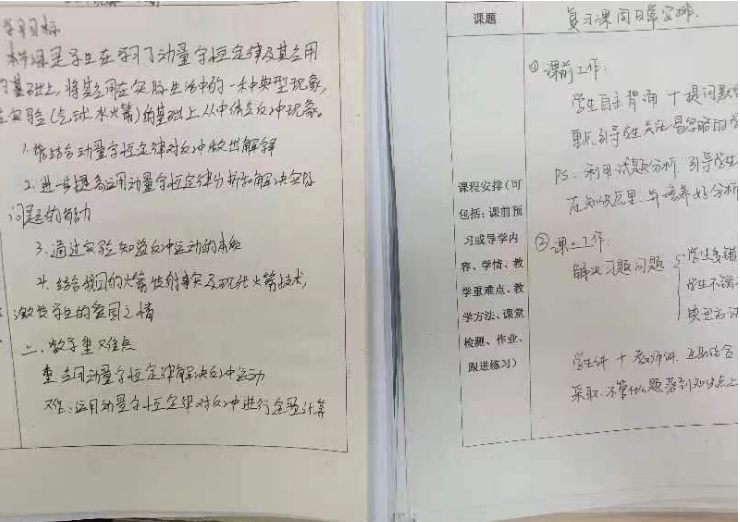 学习目标
本节课是学生在学习了动量守恒定律及其应用
基础上,将其应用在实际生活中的一种典型现象,
实验(气球、水火箭)的基础上从中体会反冲现象。
1.能结合动量守恒定律对反冲做出解释
2.进一步提高运用动量守恒定律分析和解决实际
问题的能力
3.通过实验知道反冲运动的本质
4.结合我国的火箭发射事实及现代火箭技术,
激发学生的爱国之情
二、教学重难点
重:应用动量守恒定律解决反冲运动
难:运用动量守恒定律对反冲进行定量计算
课题
复习课 周日常安排.
① 课前工作:
学生自主背诵 + 提问默
重点引导学生关注易忽略的
PS: 利用试题分析 引导学生
在知识点里.并培养好分析
课程安排(可
包括:课前预
习或导学内
容、学情、教
学重难点、教
学方法、课堂
检测、作业、
跟进练习)
② 课上工作:
解决习题问题
学生多错
学生不错
典型方法
学生讲 + 教师讲.
采取.不管什么题落到知识点上